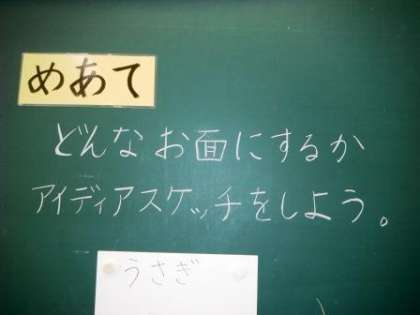 めあて
どんなお面にするか
アイディアスケッチをしよう。
うさぎ